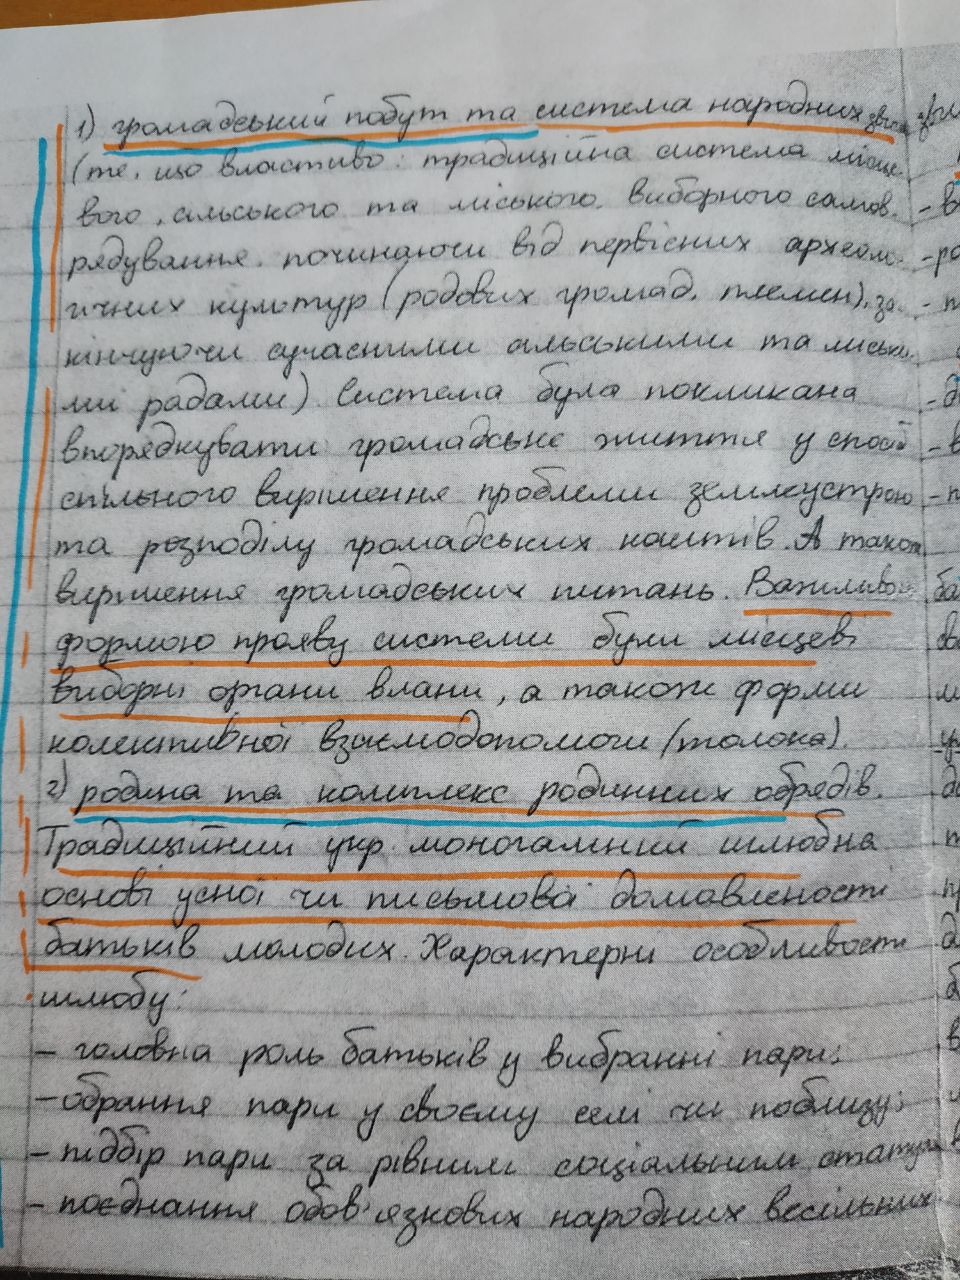 1) громадський побут та система народних звича
(те, що властиво: традиційна система місце-
вого, сільського та міського виборного самов-
рядування, починаючи від первісних археол-
гічних культур (родових громад, племен), за-
кінчуючи сучасними сільськими та міськи-
ми радами). Система була покликана
впорядкувати громадське життя у спосіб
спільного вирішення проблеми землеустрою
та розподілу громадських коштів. А також
вирішення громадських питань. Важливою
формою прояву системи були місцеві
виборні органи влади, а також форми
колективної взаємодопомоги (толока).
2) родина та комплекс родинних обрядів.
Традиційний укр. моногамний шлюб на
основі усної чи письмової домовленості
батьків молодих. Характерні особливості
шлюбу:
- головна роль батьків у вибранні пари;
- обрання пари у своєму селі чи поблизу;
- підбір пари за рівним соціальним статусом
- поєднання обов'язкових народних весільних